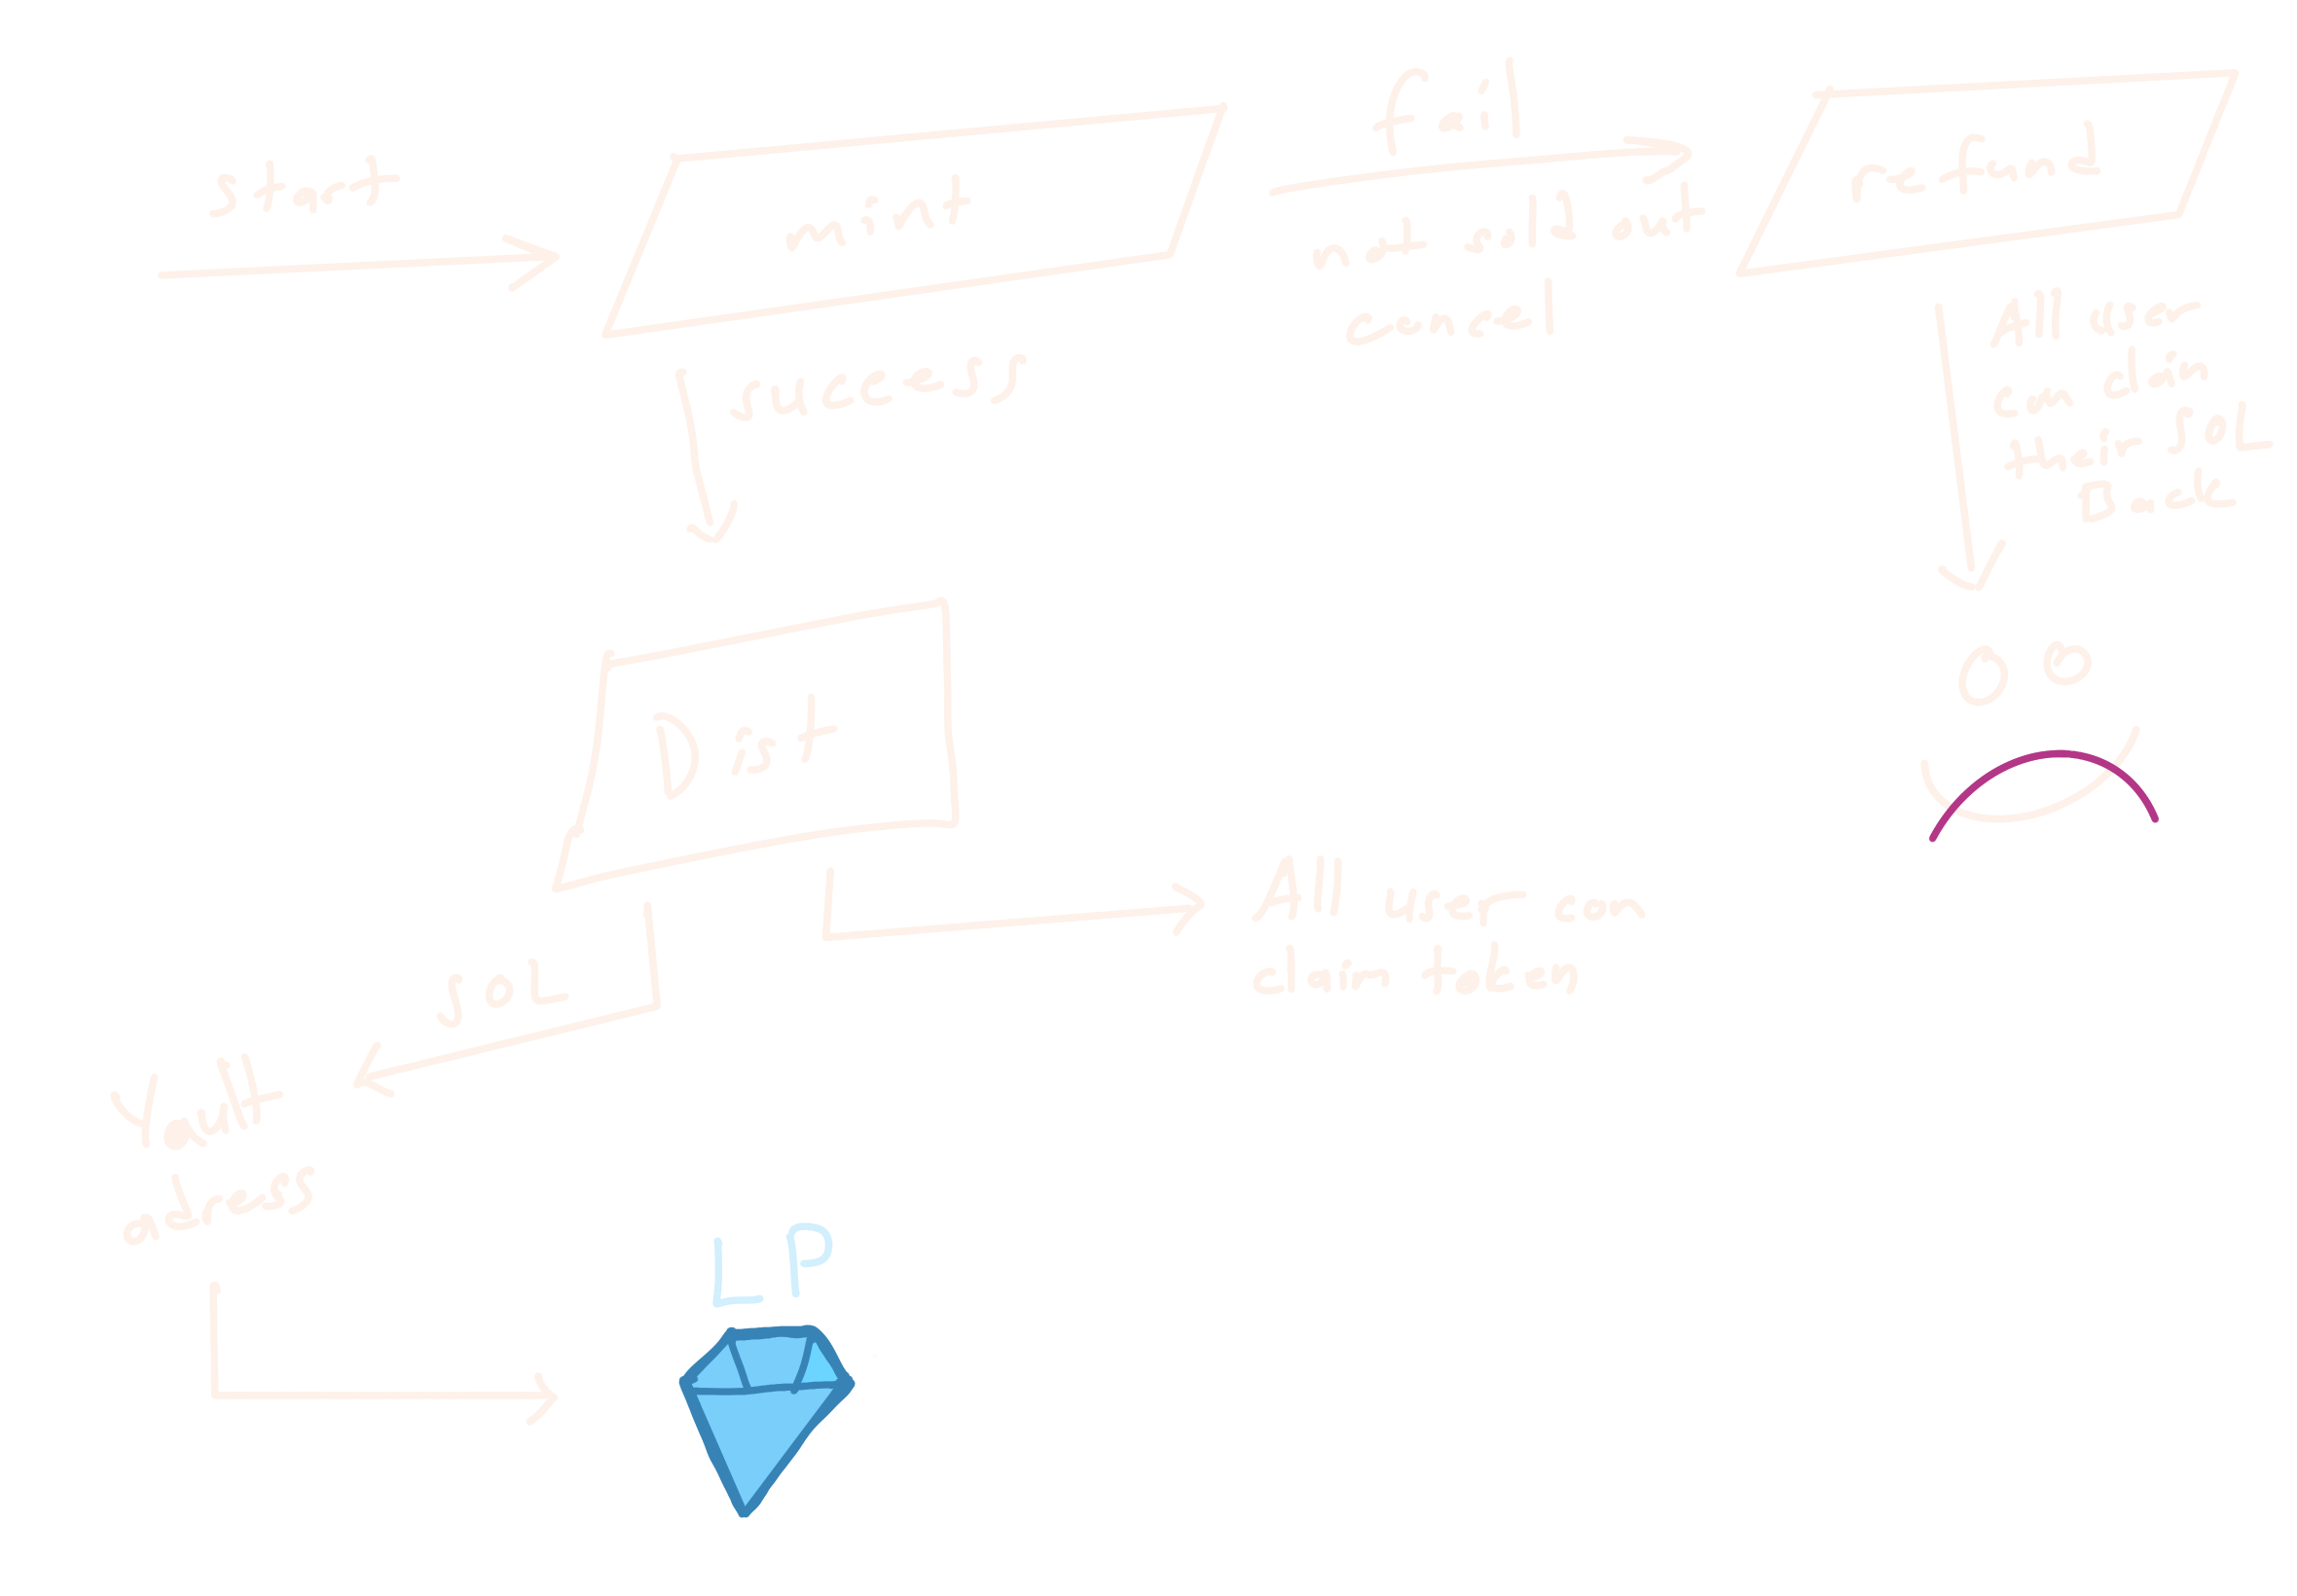 start
mint
fail
not sold out
cancel
refund
All user
can claim
their SOL
Back
success
Dist
All user can
claim token
SOL
Vault
adress
LP